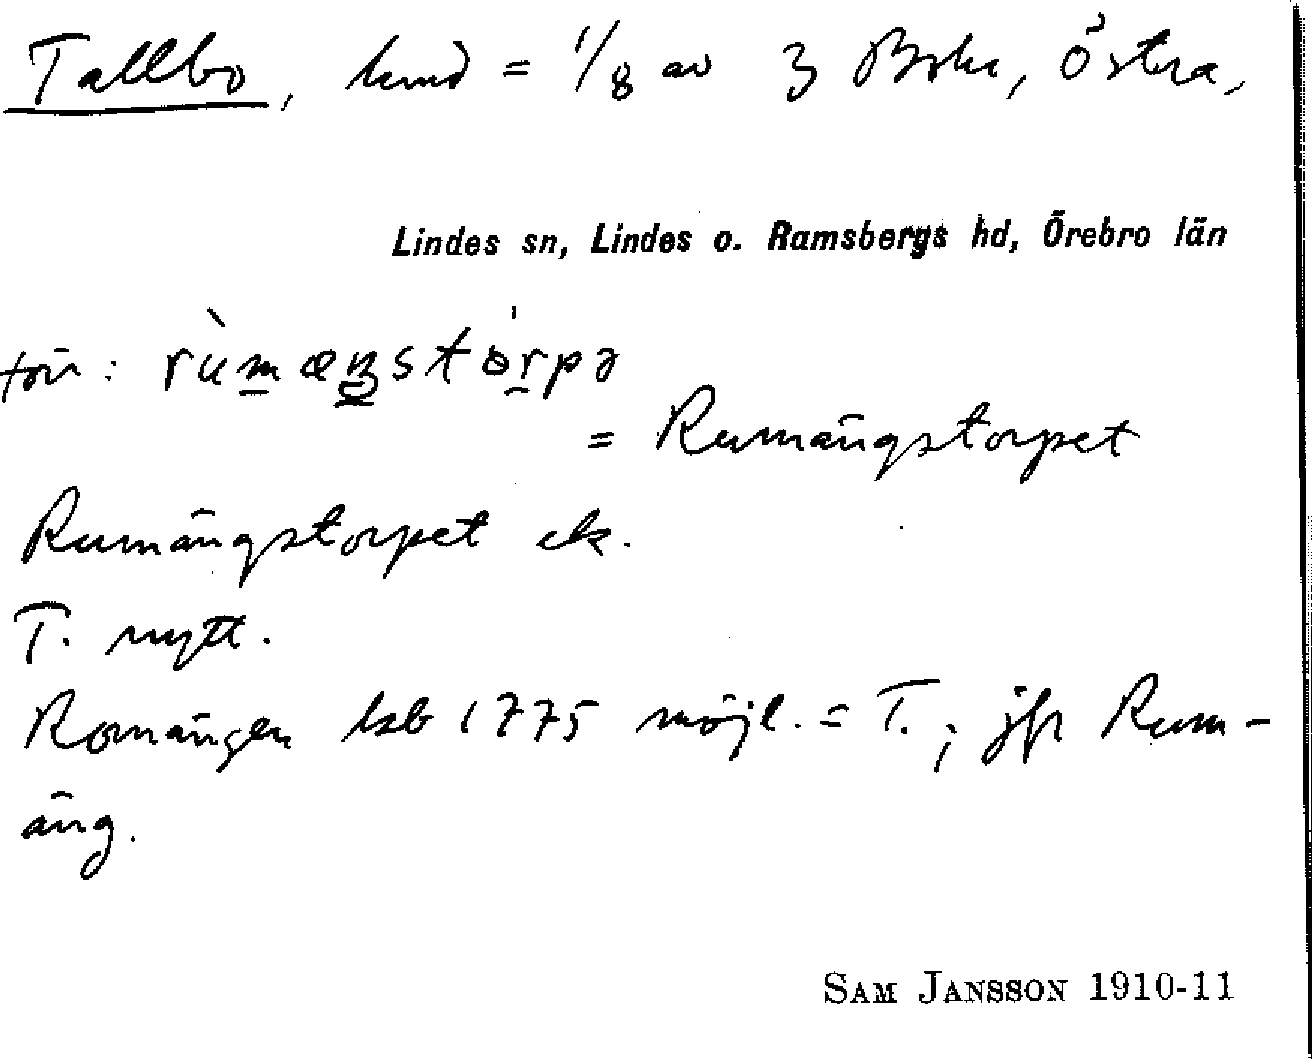 Tallbo, hmd = 1/8 av 3 Boke, Östra,
Lindes sn, Lindes o. Ramsbergs hd, Örebro län
: rùmæŋstórpə
= Rumängstorpet
Rumängstorpet ek.
T. nytt.
Romängen hsb 1775 möjl. = T.; jfr Rum-
äng.
SAM JANSSON 1910-11